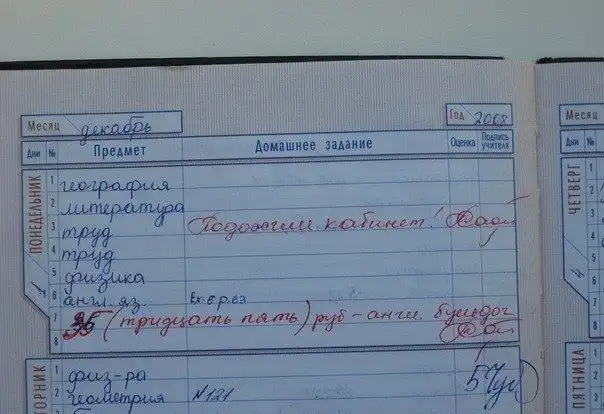 Месяц декабрь Год 2008
Дни № Предмет Домашнее задание Оценка Подпись учителя
ПОНЕДЕЛЬНИК
1 география
2 литература
3 труд Подожгли кабинет!
4 труд
5 физика
6 англ. яз. Ex. 6 p. 63
7 35 (тридцать пять) руб - англ. бульдог
8
ВТОРНИК
1 физ-ра 5
2 геометрия №121
Месяц
Дни №
ЧЕТВЕРГ
1
2
3
4
5
6
7
8
ПЯТНИЦА
1
2